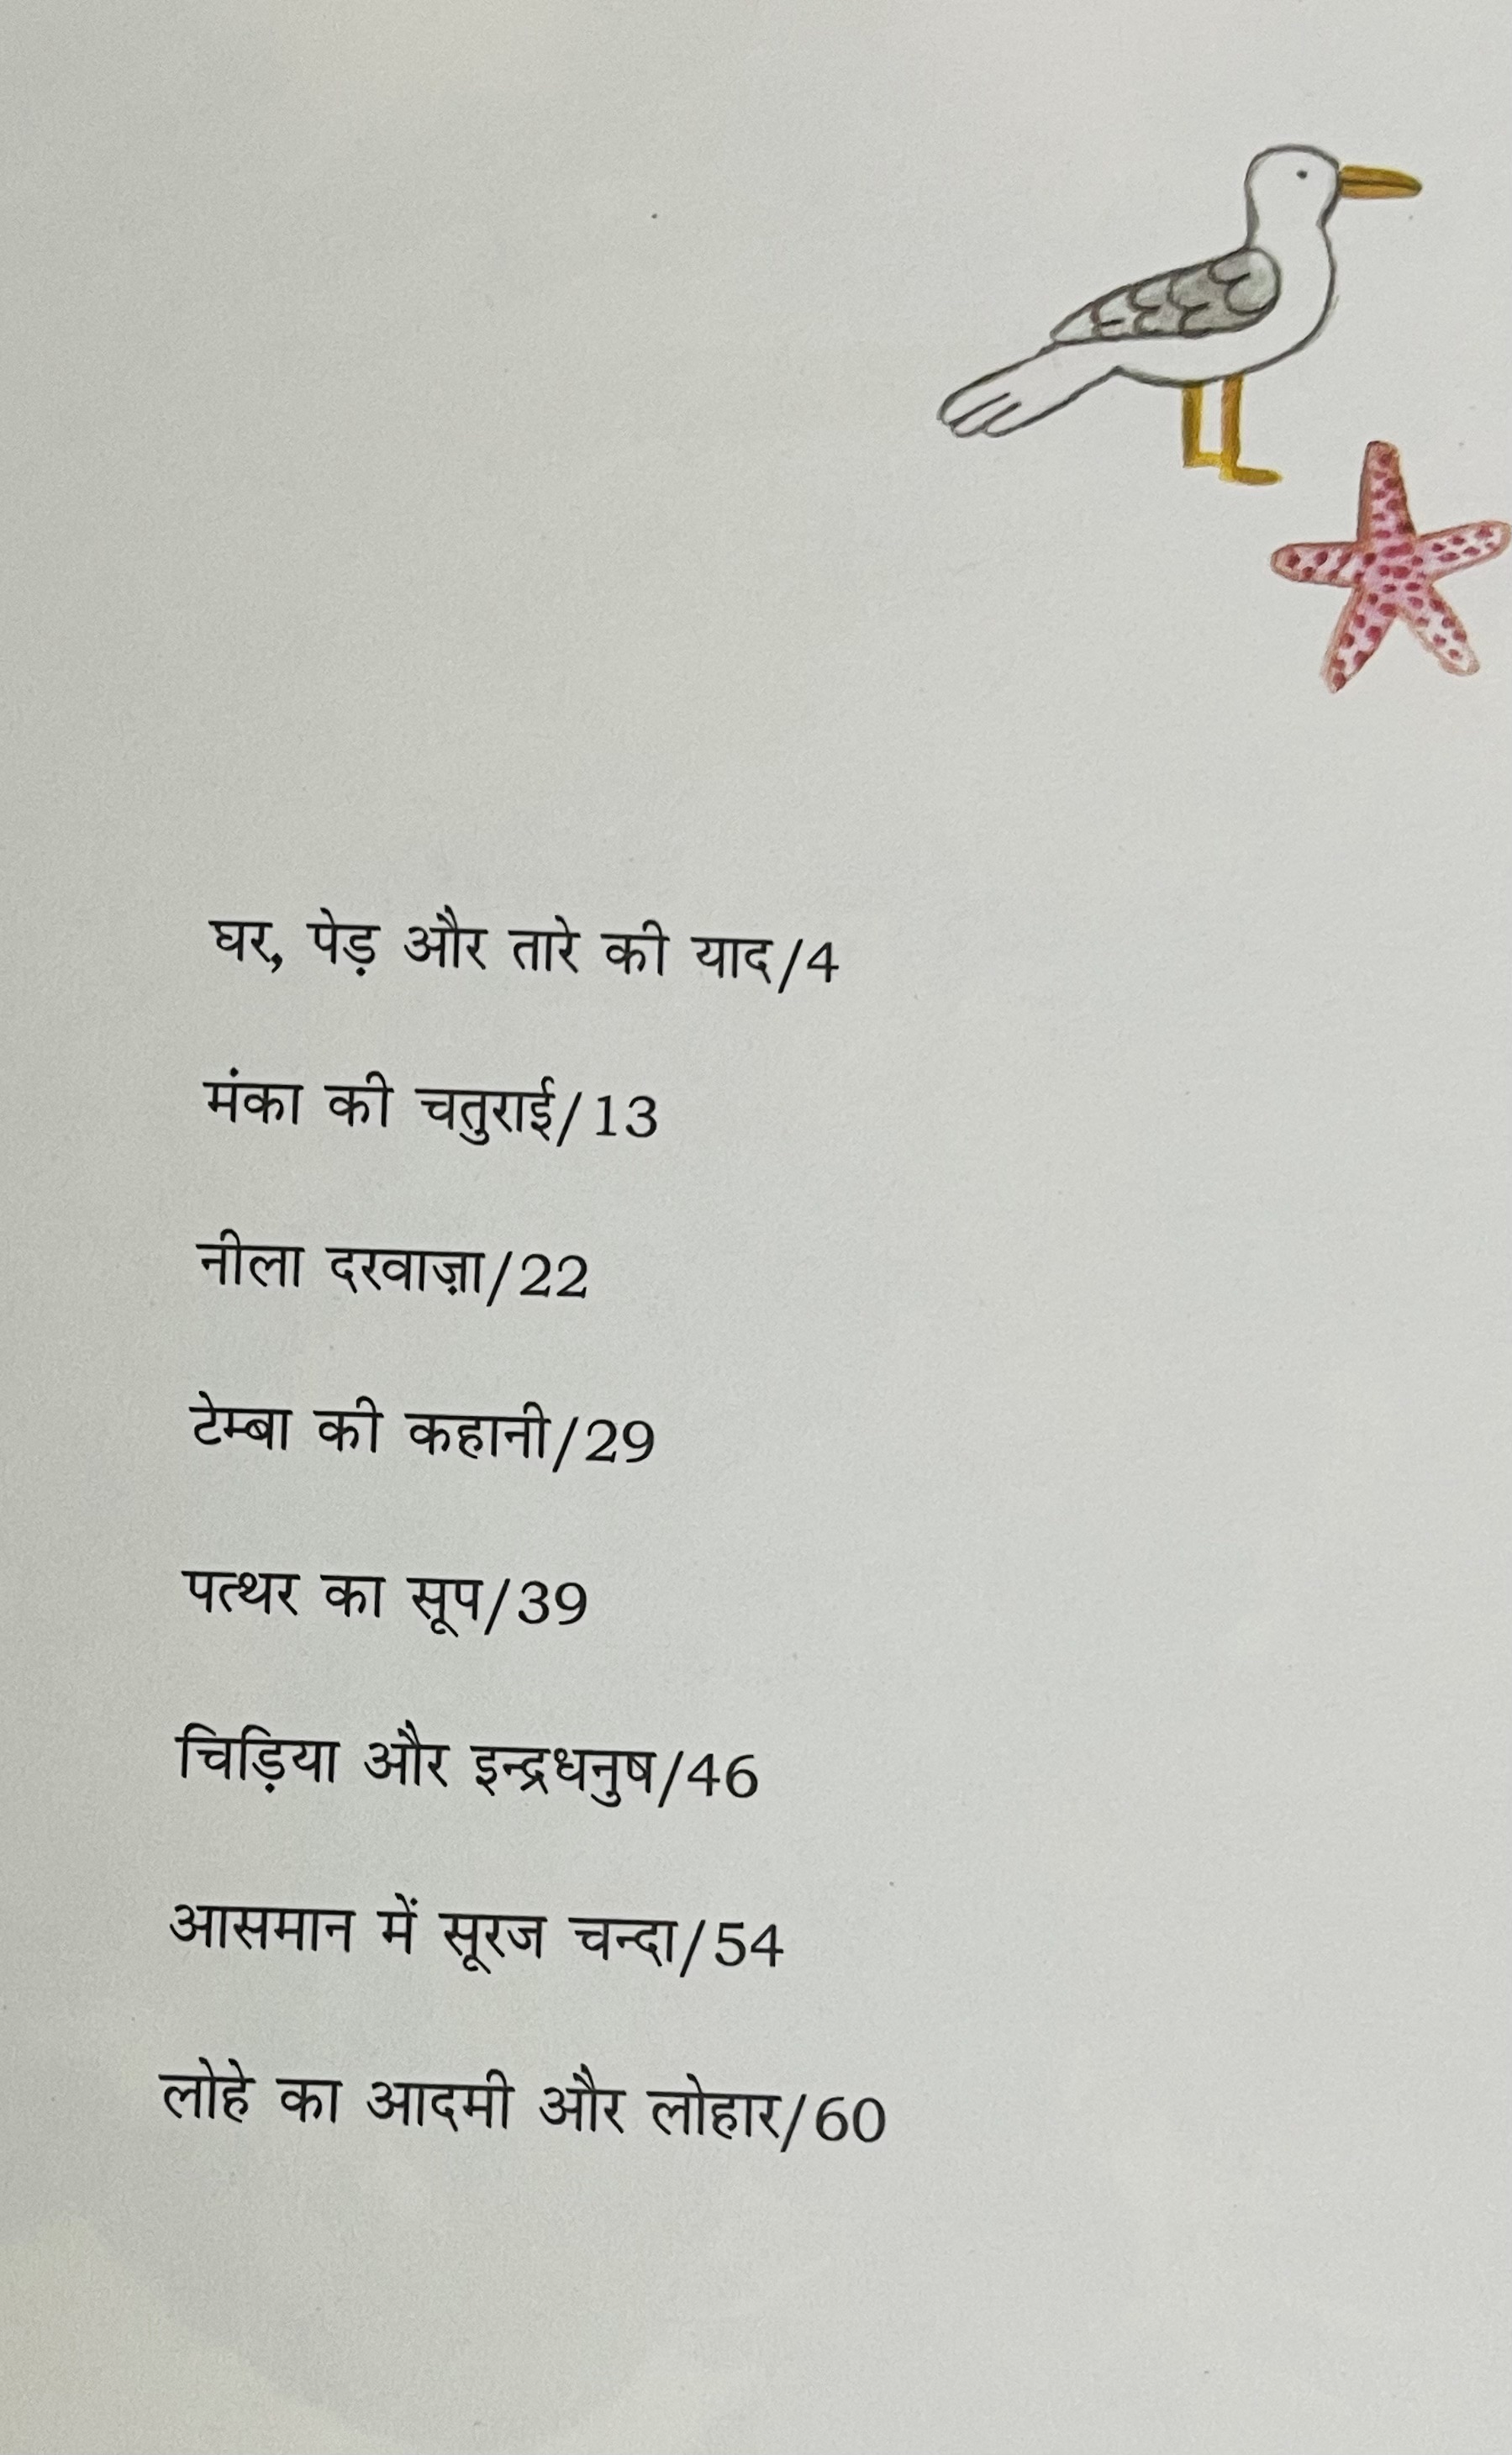 घर, पेड़ और तारे की याद/4
मंका की चतुराई/13
नीला दरवाज़ा/22
टेम्बा की कहानी/29
पत्थर का सूप/39
चिड़िया और इन्द्रधनुष/46
आसमान में सूरज चन्दा/54
लोहे का आदमी और लोहार/60